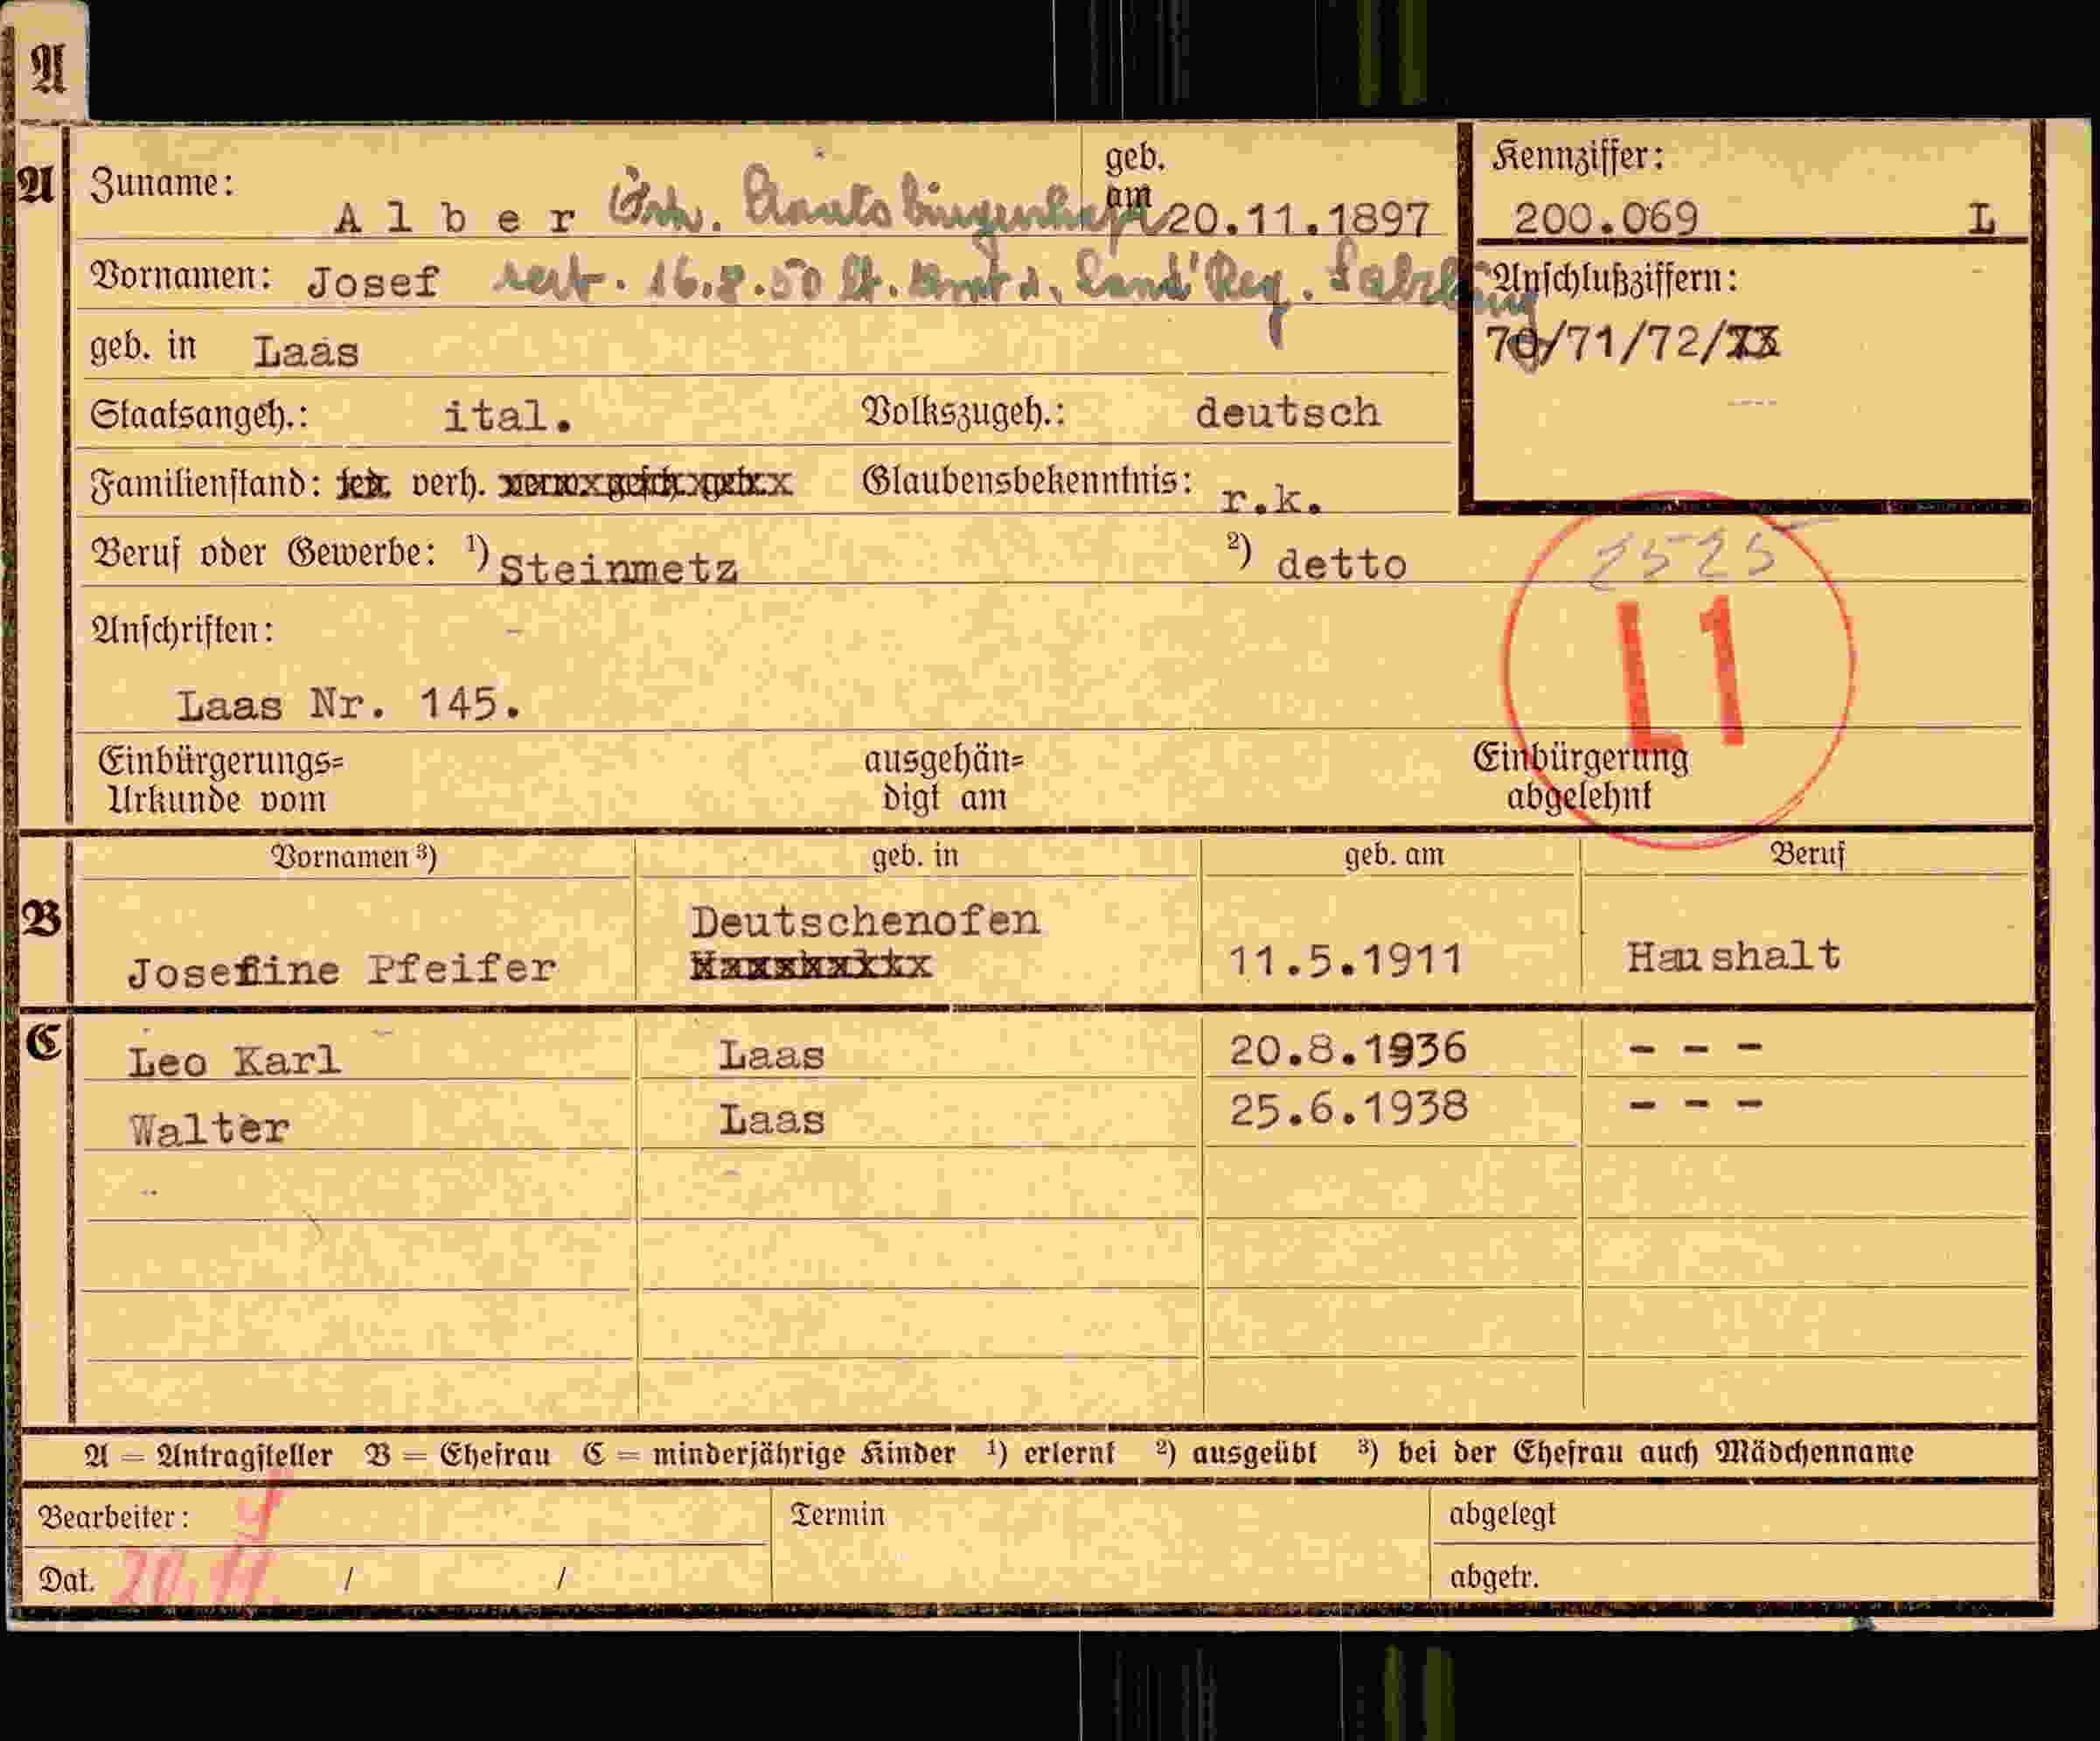 A
A Zuname: A l b e r Öst. Staatsbürgerschaft geb. am 20.11.1897
Kennziffer:
200.069 L
Vornamen: Josef 16.8.50 lt. Amt d. Land Reg. Salzburg
Anschlußziffern:
70/71/72/73
geb. in Laas
Staatsangeh.: ital. Volkszugeh.: deutsch
Familienstand: led. verh. verw. gesch. getr. Glaubensbekenntnis: r.k.
Beruf oder Gewerbe: ¹) Steinmetz ²) detto
2525
L1
Anschriften:
Laas Nr. 145.
Einbürgerungs=
Urkunde vom
ausgehän=
digt am
Einbürgerung
abgelehnt
Vornamen ³) geb. in geb. am Beruf
B
Deutschenofen
Josefine Pfeifer 11.5.1911 Haushalt
C
Leo Karl Laas 20.8.1936 - - -
Walter Laas 25.6.1938 - - -
A = Antragsteller B = Ehefrau C = minderjährige Kinder ¹) erlernt ²) ausgeübt ³) bei der Ehefrau auch Mädchenname
Bearbeiter: Termin abgelegt
Dat. / / abgetr.